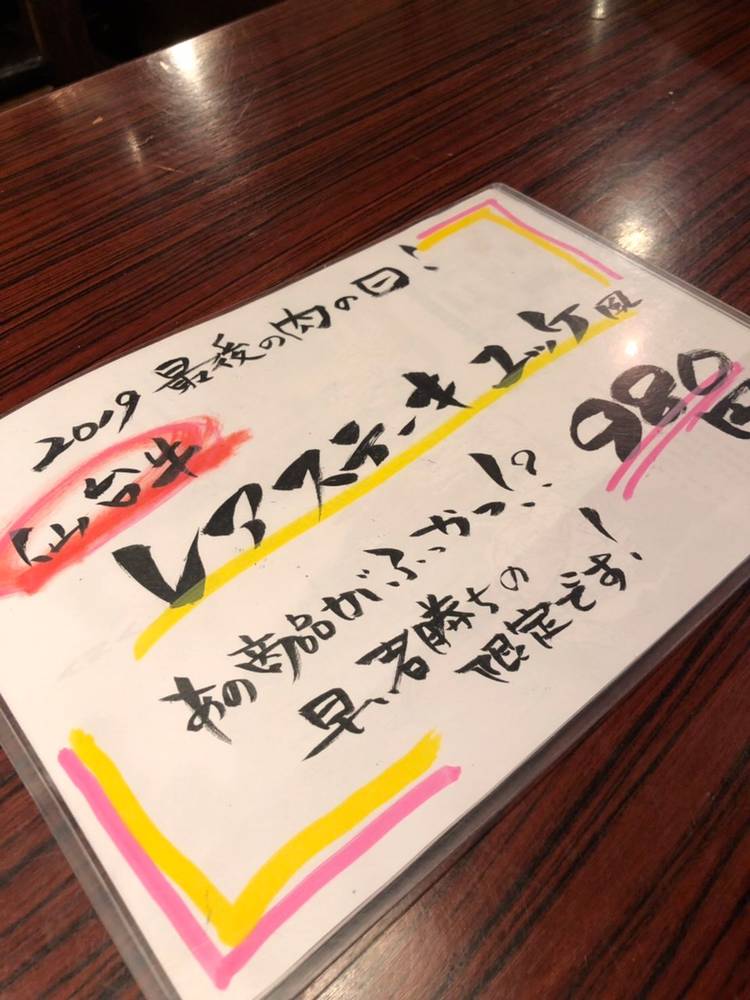 2019 最後の肉の日!
仙台牛
レアステーキユッケ風
980円
あの商品がふっかつ!?
早い者勝ちの
限定です!